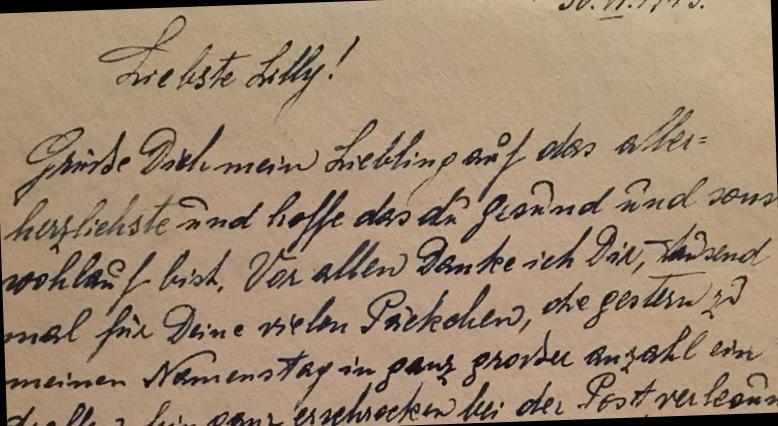 30. VI. 1943.
Liebste Lilly!
Grüße Dich mein Liebling auf das aller=
herzlichste und hoffe das du gesund und sons
wohlauf bist. Vor allen Danke ich Dir, tausend
mal für Deine vielen Päckchen, die gestern zu
meinen Namenstag in ganz großer anzahl ein
bin ganz erschrocken bei der Post